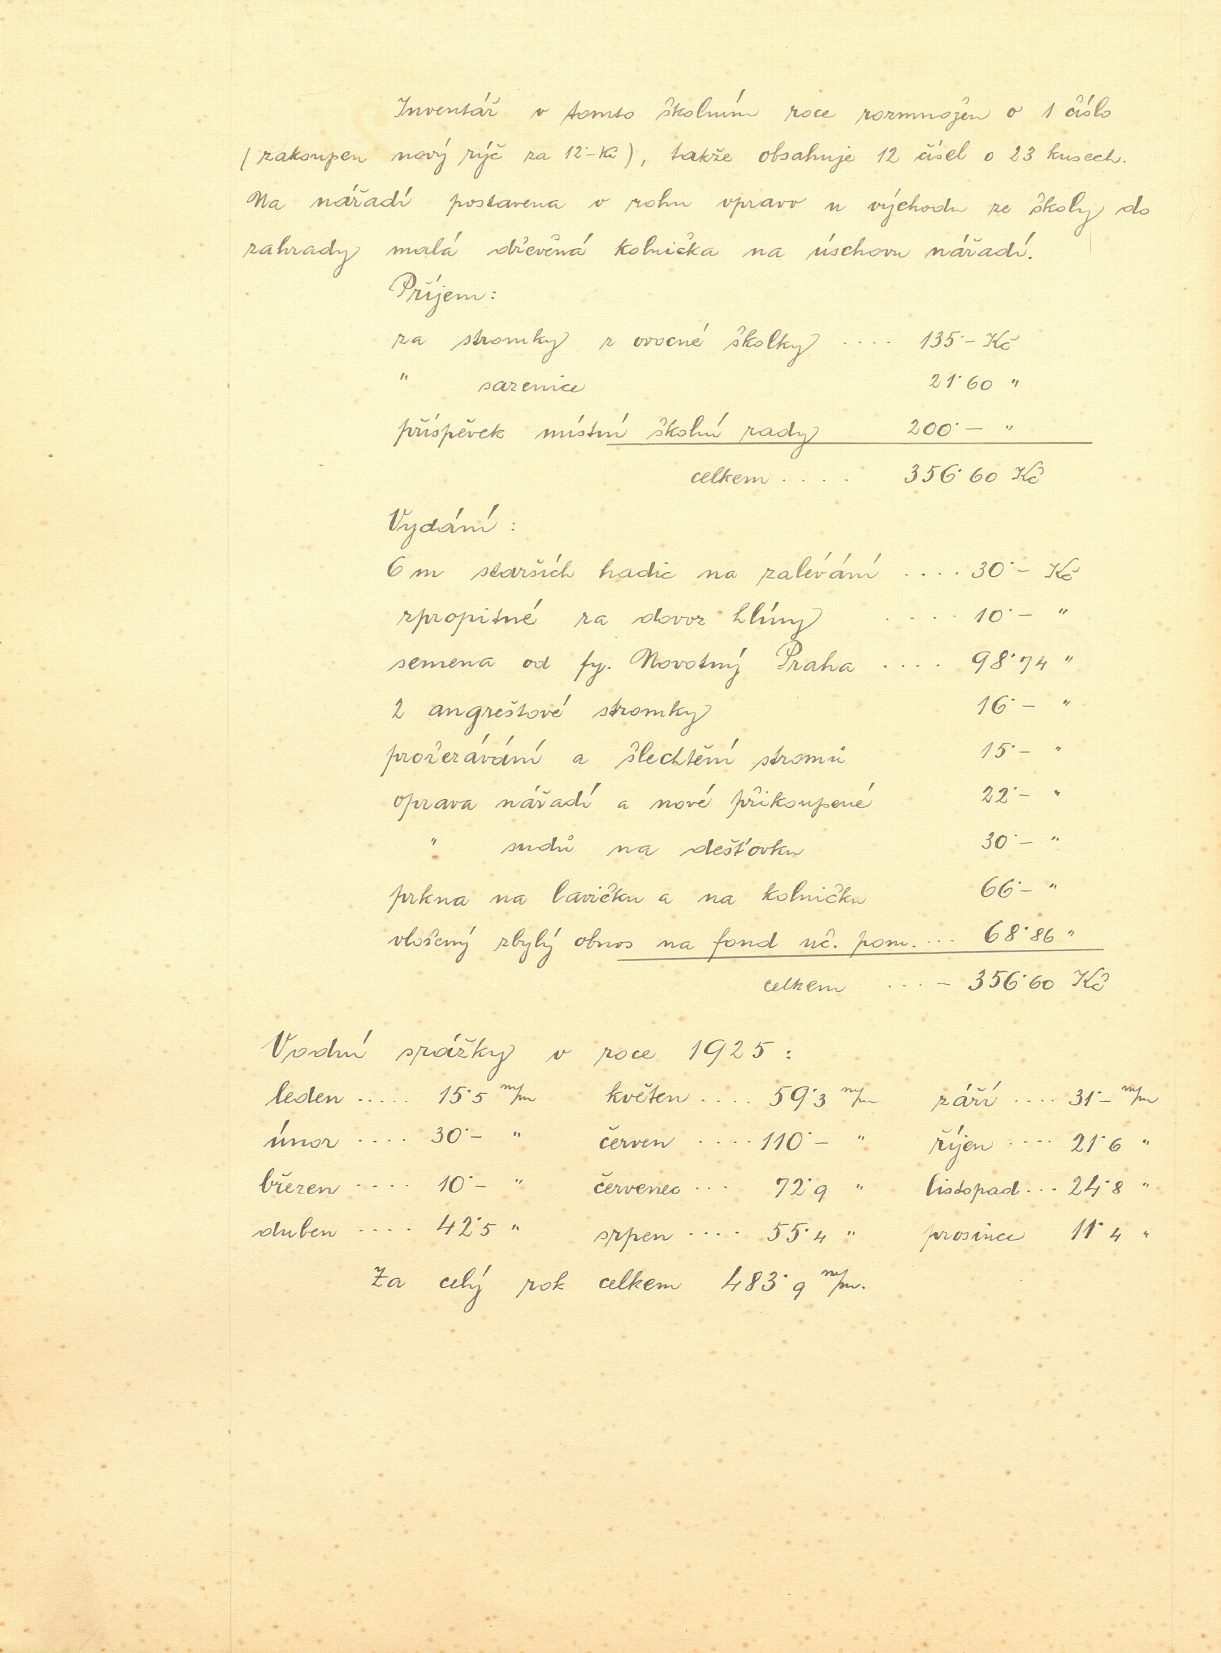 Inventář v tomto školním roce rozmnožen o 1 číslo
(zakoupen nový rýč za 12·– Kč), takže obsahuje 12 čísel o 23 kusech.
Na nářadí postavena v rohu vpravo u východu ze školy do
zahrady malá dřevěná kolnička na úschovu nářadí.
Příjem:
za stromky z ovocné školky .... 135·– Kč
" sazenice 21·60 "
příspěvek místní školní rady 200·– "
celkem .... 356·60 Kč
Vydání:
6 m starších hadic na zalévání .... 30·– Kč
zpropitné za dovoz hlíny .... 10·– "
semena od fy. Novotný Praha .... 98·74 "
2 angreštové stromky 16·– "
prořezávání a šlechtění stromů 15·– "
oprava nářadí a nové přikoupené 22·– "
" sudů na dešťovku 30·– "
prkna na lavičku a na kolničku 66·– "
vložený zbylý obnos na fond uč. pom. ... 68·86 "
celkem ...– 356·60 Kč
Vodní srážky v roce 1925:
leden ..... 15·5 m/m květen .... 59·3 m/m září .... 31·– m/m
únor .... 30·– " červen .... 110·– " říjen .... 21·6 "
březen .... 10·– " červenec ... 72·9 " listopad ... 24·8 "
duben .... 42·5 " srpen .... 55·4 " prosinec 11·4 "
Za celý rok celkem 483·9 m/m.